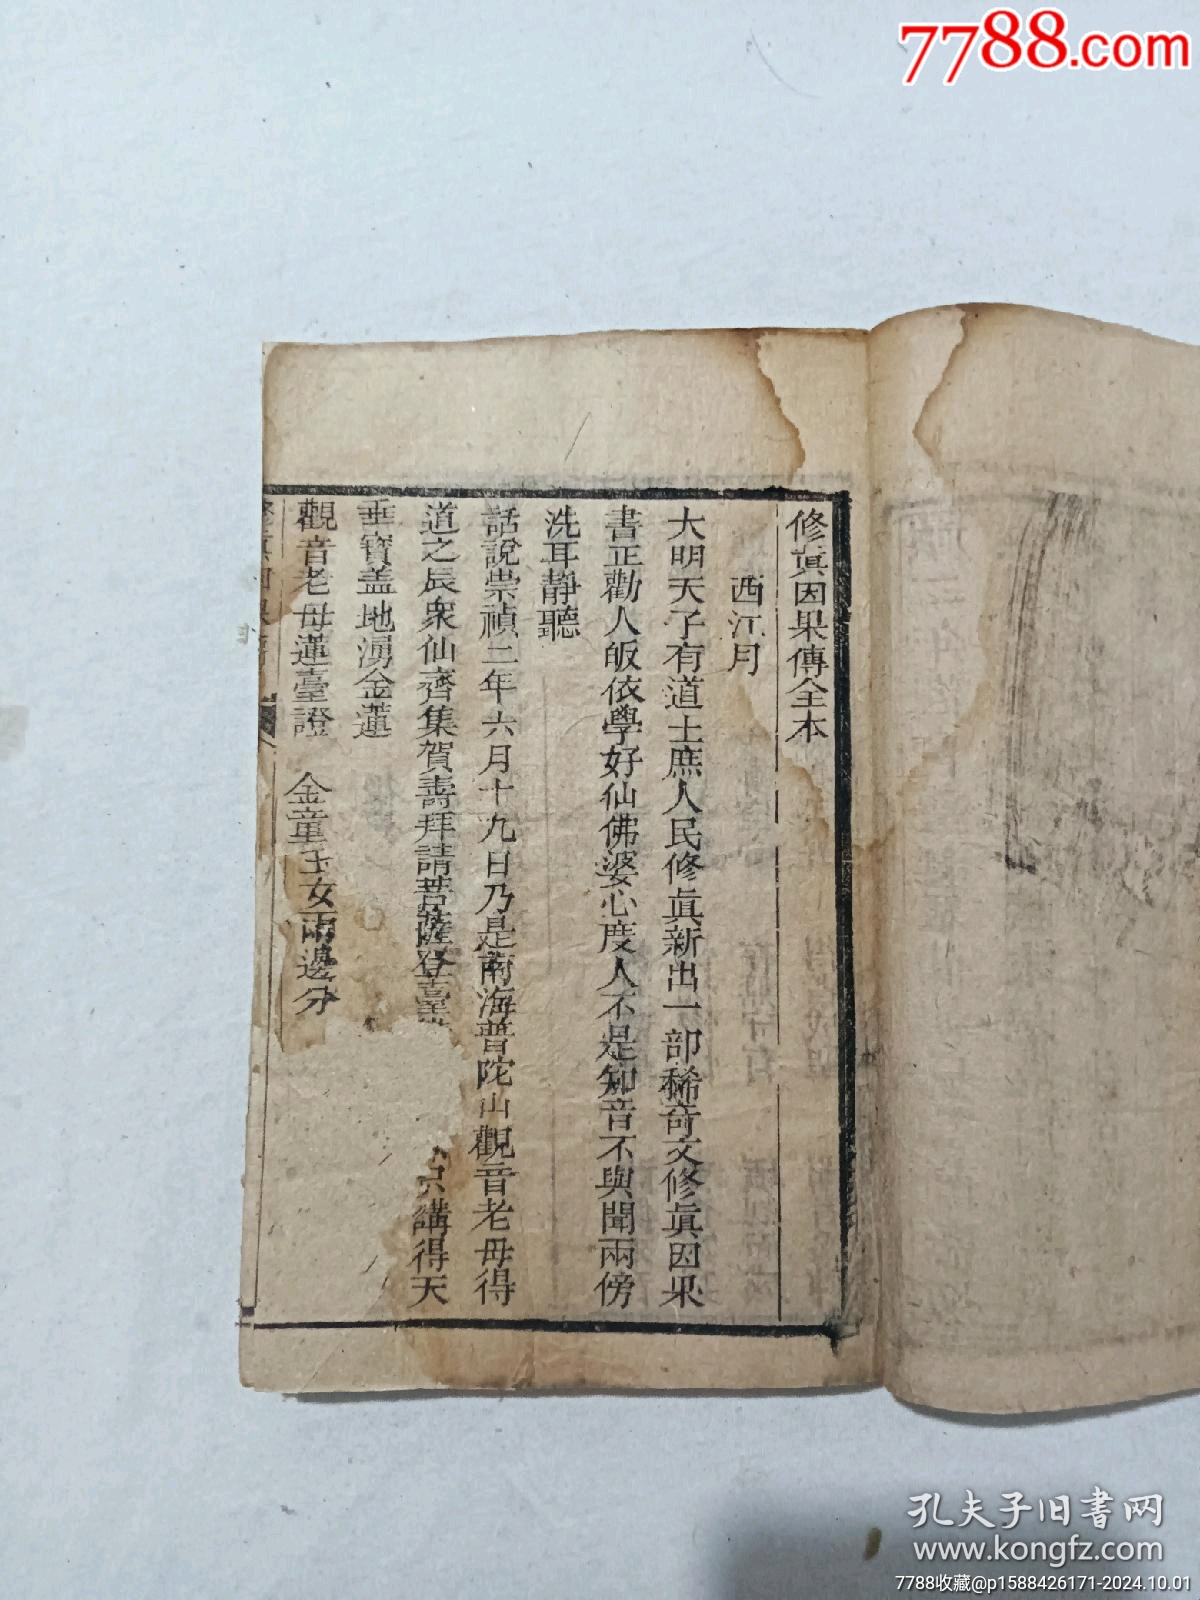 7788.com
修眞因果傳全本
西江月
大明天子有道士庶人民修眞新出一部稀奇文修眞因果
書正勸人皈依學好仙佛婆心度人不是知音不與聞兩傍
洗耳靜聽
話說崇禎二年六月十九日乃是南海普陀山觀音老母得
道之辰衆仙齊集賀壽拜請菩薩登臺 講得天
垂寶盖地湧金蓮
觀音老母蓮臺證 金童玉女兩邊分
孔夫子旧书网
www.kongfz.com
7788收藏@p1588426171-2024.10.01